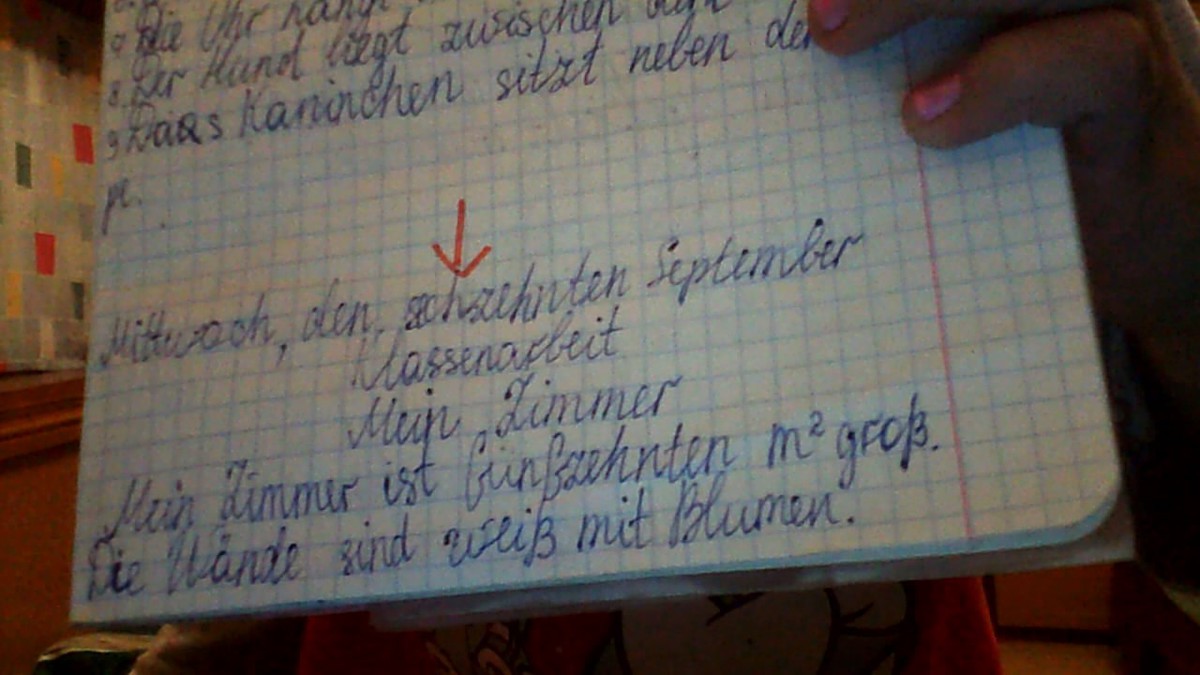 Die Uhr hängt
8. Der Hund liegt zwischen dem
9 Daas Kaninchen sitzt neben de
Mittwoch, den, sechzehnten September
Klassenarbeit
Mein Zimmer
Mein Zimmer ist fünßzehnten m² groß.
Die Wände sind weiß mit Blumen.